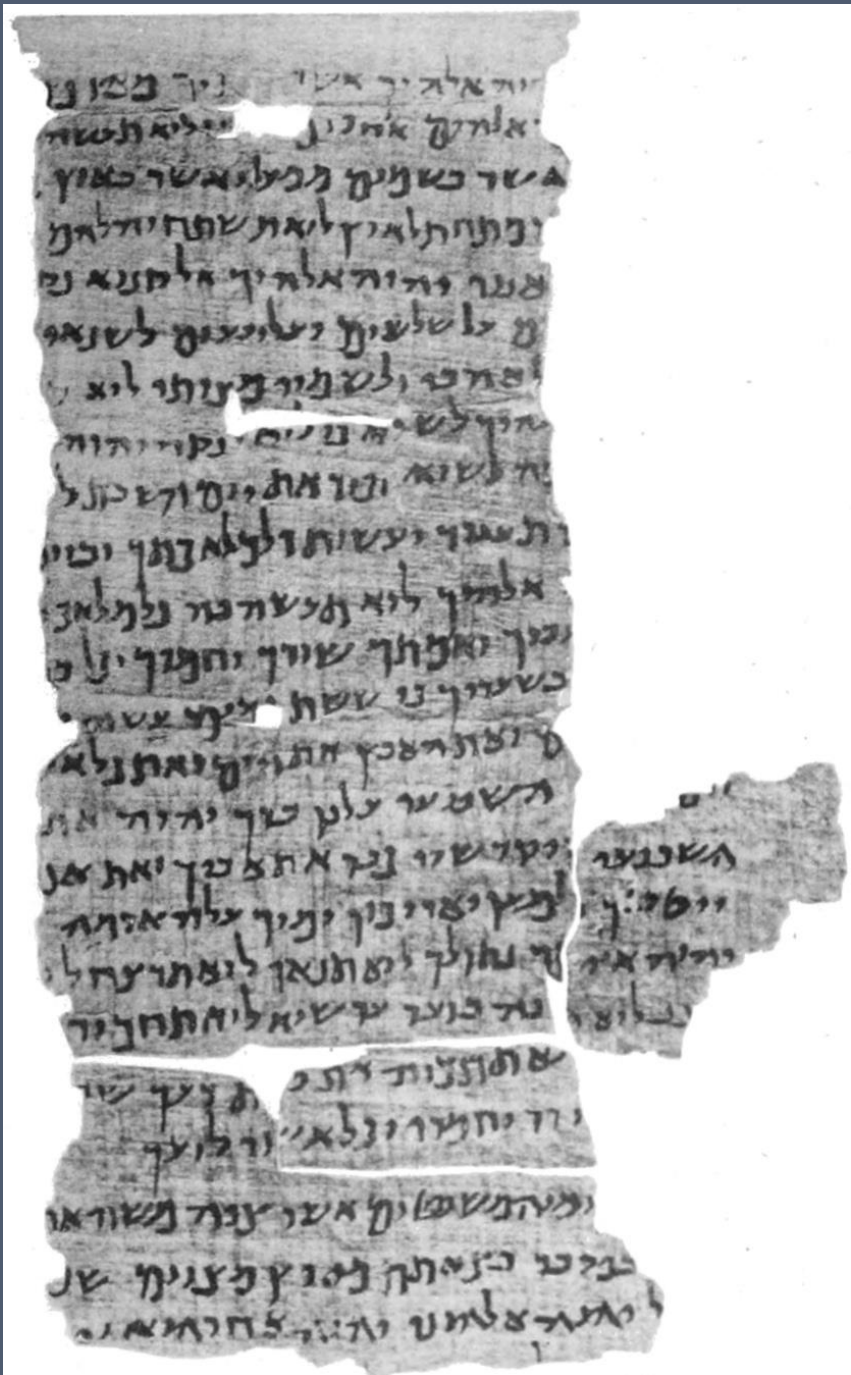 אלהיך אשר מארץ
אלהים אחרים לוא תעשה
אשר בשמים ממעל ואשר בארץ
מתחת לארץ לוא תשתחוה להם
יהוה אלהיך אל קנוא
על שלשים ועל רבעים לשנאי
לאהבי ולשמרי מצותי לוא
לשוא לוא ינקה יהוה
לשוא זכור את יום השבת ל
ועשית כל מלאכתך וביום
אלהיך לוא תעשה בה כל מלאכה
עבדך ואמתך שורך וחמרך וכל ב
בשעריך כי ששת ימים עשה
ם ואת הארץ את הים ואת כל א
השביעי עלכן ברך יהוה את
השביעי ויקדשיו כבד את אביך ואת אמ
ייטב לך ולמען יאריכון ימיך על האדמה
יהוה אלהיך נתן לך לוא תנאף לוא תרצח לו
לוא ברעך עד שוא לוא תחמוד
את בית רעך שד
ורו וחמרו וכל אשר לרעך
ים והמשפטים אשר צוה משה את
במדבר בצאתם מארץ מצרים שמ
ל יהוה אלהינו יהוה אחד הוא וא
ל